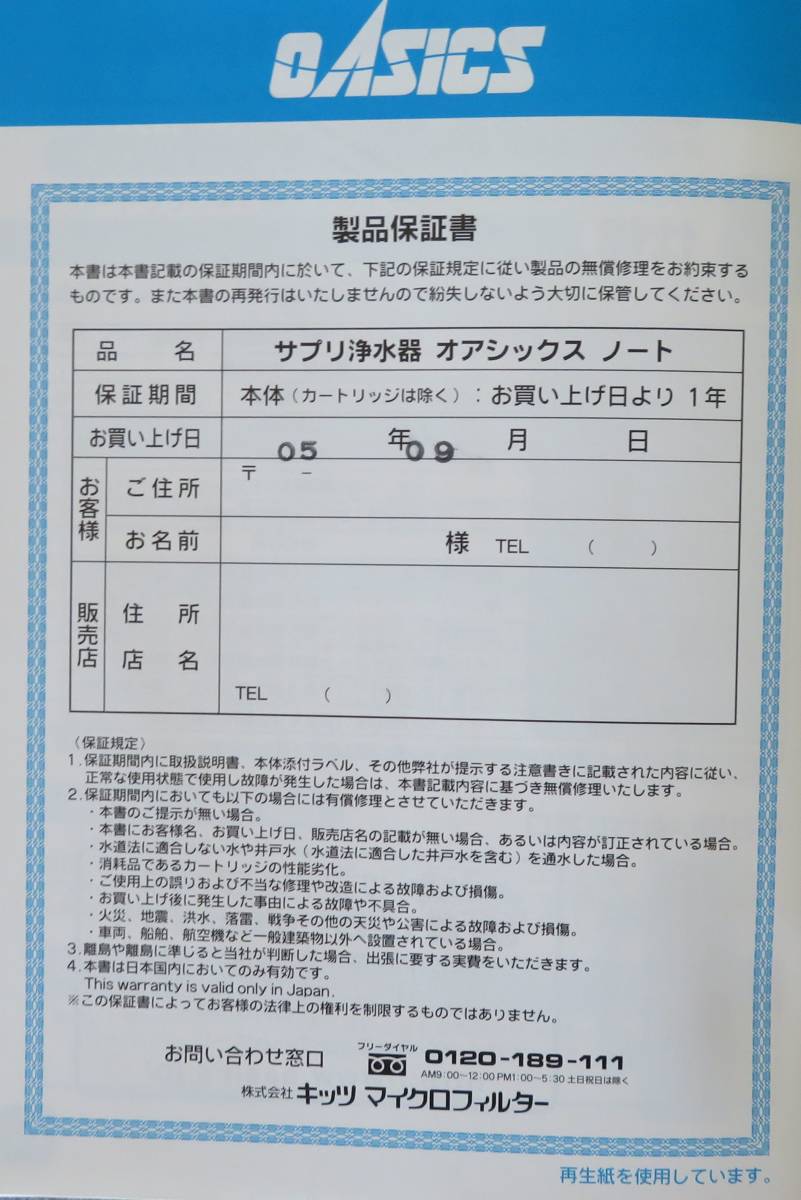 OASICS
製品保証書
本書は本書記載の保証期間内に於いて、下記の保証規定に従い製品の無償修理をお約束する
ものです。また本書の再発行はいたしませんので紛失しないよう大切に保管してください。
品 名 サプリ浄水器 オアシックス ノート
保証期間 本体(カートリッジは除く):お買い上げ日より 1年
お買い上げ日 05 年 09 月 日
お客様 ご住所 〒 −
お名前 様 TEL ( )
販売店 住 所
店 名
TEL ( )
〈保証規定〉
1.保証期間内に取扱説明書、本体添付ラベル、その他弊社が提示する注意書きに記載された内容に従い、
正常な使用状態で使用し故障が発生した場合は、本書記載内容に基づき無償修理いたします。
2.保証期間内においても以下の場合には有償修理とさせていただきます。
・本書のご提示が無い場合。
・本書にお客様名、お買い上げ日、販売店名の記載が無い場合、あるいは内容が訂正されている場合。
・水道法に適合しない水や井戸水(水道法に適合した井戸水を含む)を通水した場合。
・消耗品であるカートリッジの性能劣化。
・ご使用上の誤りおよび不当な修理や改造による故障および損傷。
・お買い上げ後に発生した事由による故障や不具合。
・火災、地震、洪水、落雷、戦争その他の天災や公害による故障および損傷。
・車両、船舶、航空機など一般建築物以外へ設置されている場合。
3.離島や離島に準じると当社が判断した場合、出張に要する実費をいただきます。
4.本書は日本国内においてのみ有効です。
This warranty is valid only in Japan.
※この保証書によってお客様の法律上の権利を制限するものではありません。
お問い合わせ窓口 フリーダイヤル 0120-189-111
AM9:00〜12:00 PM1:00〜5:30 土日祝日は除く
株式会社 キッツ マイクロフィルター
再生紙を使用しています。